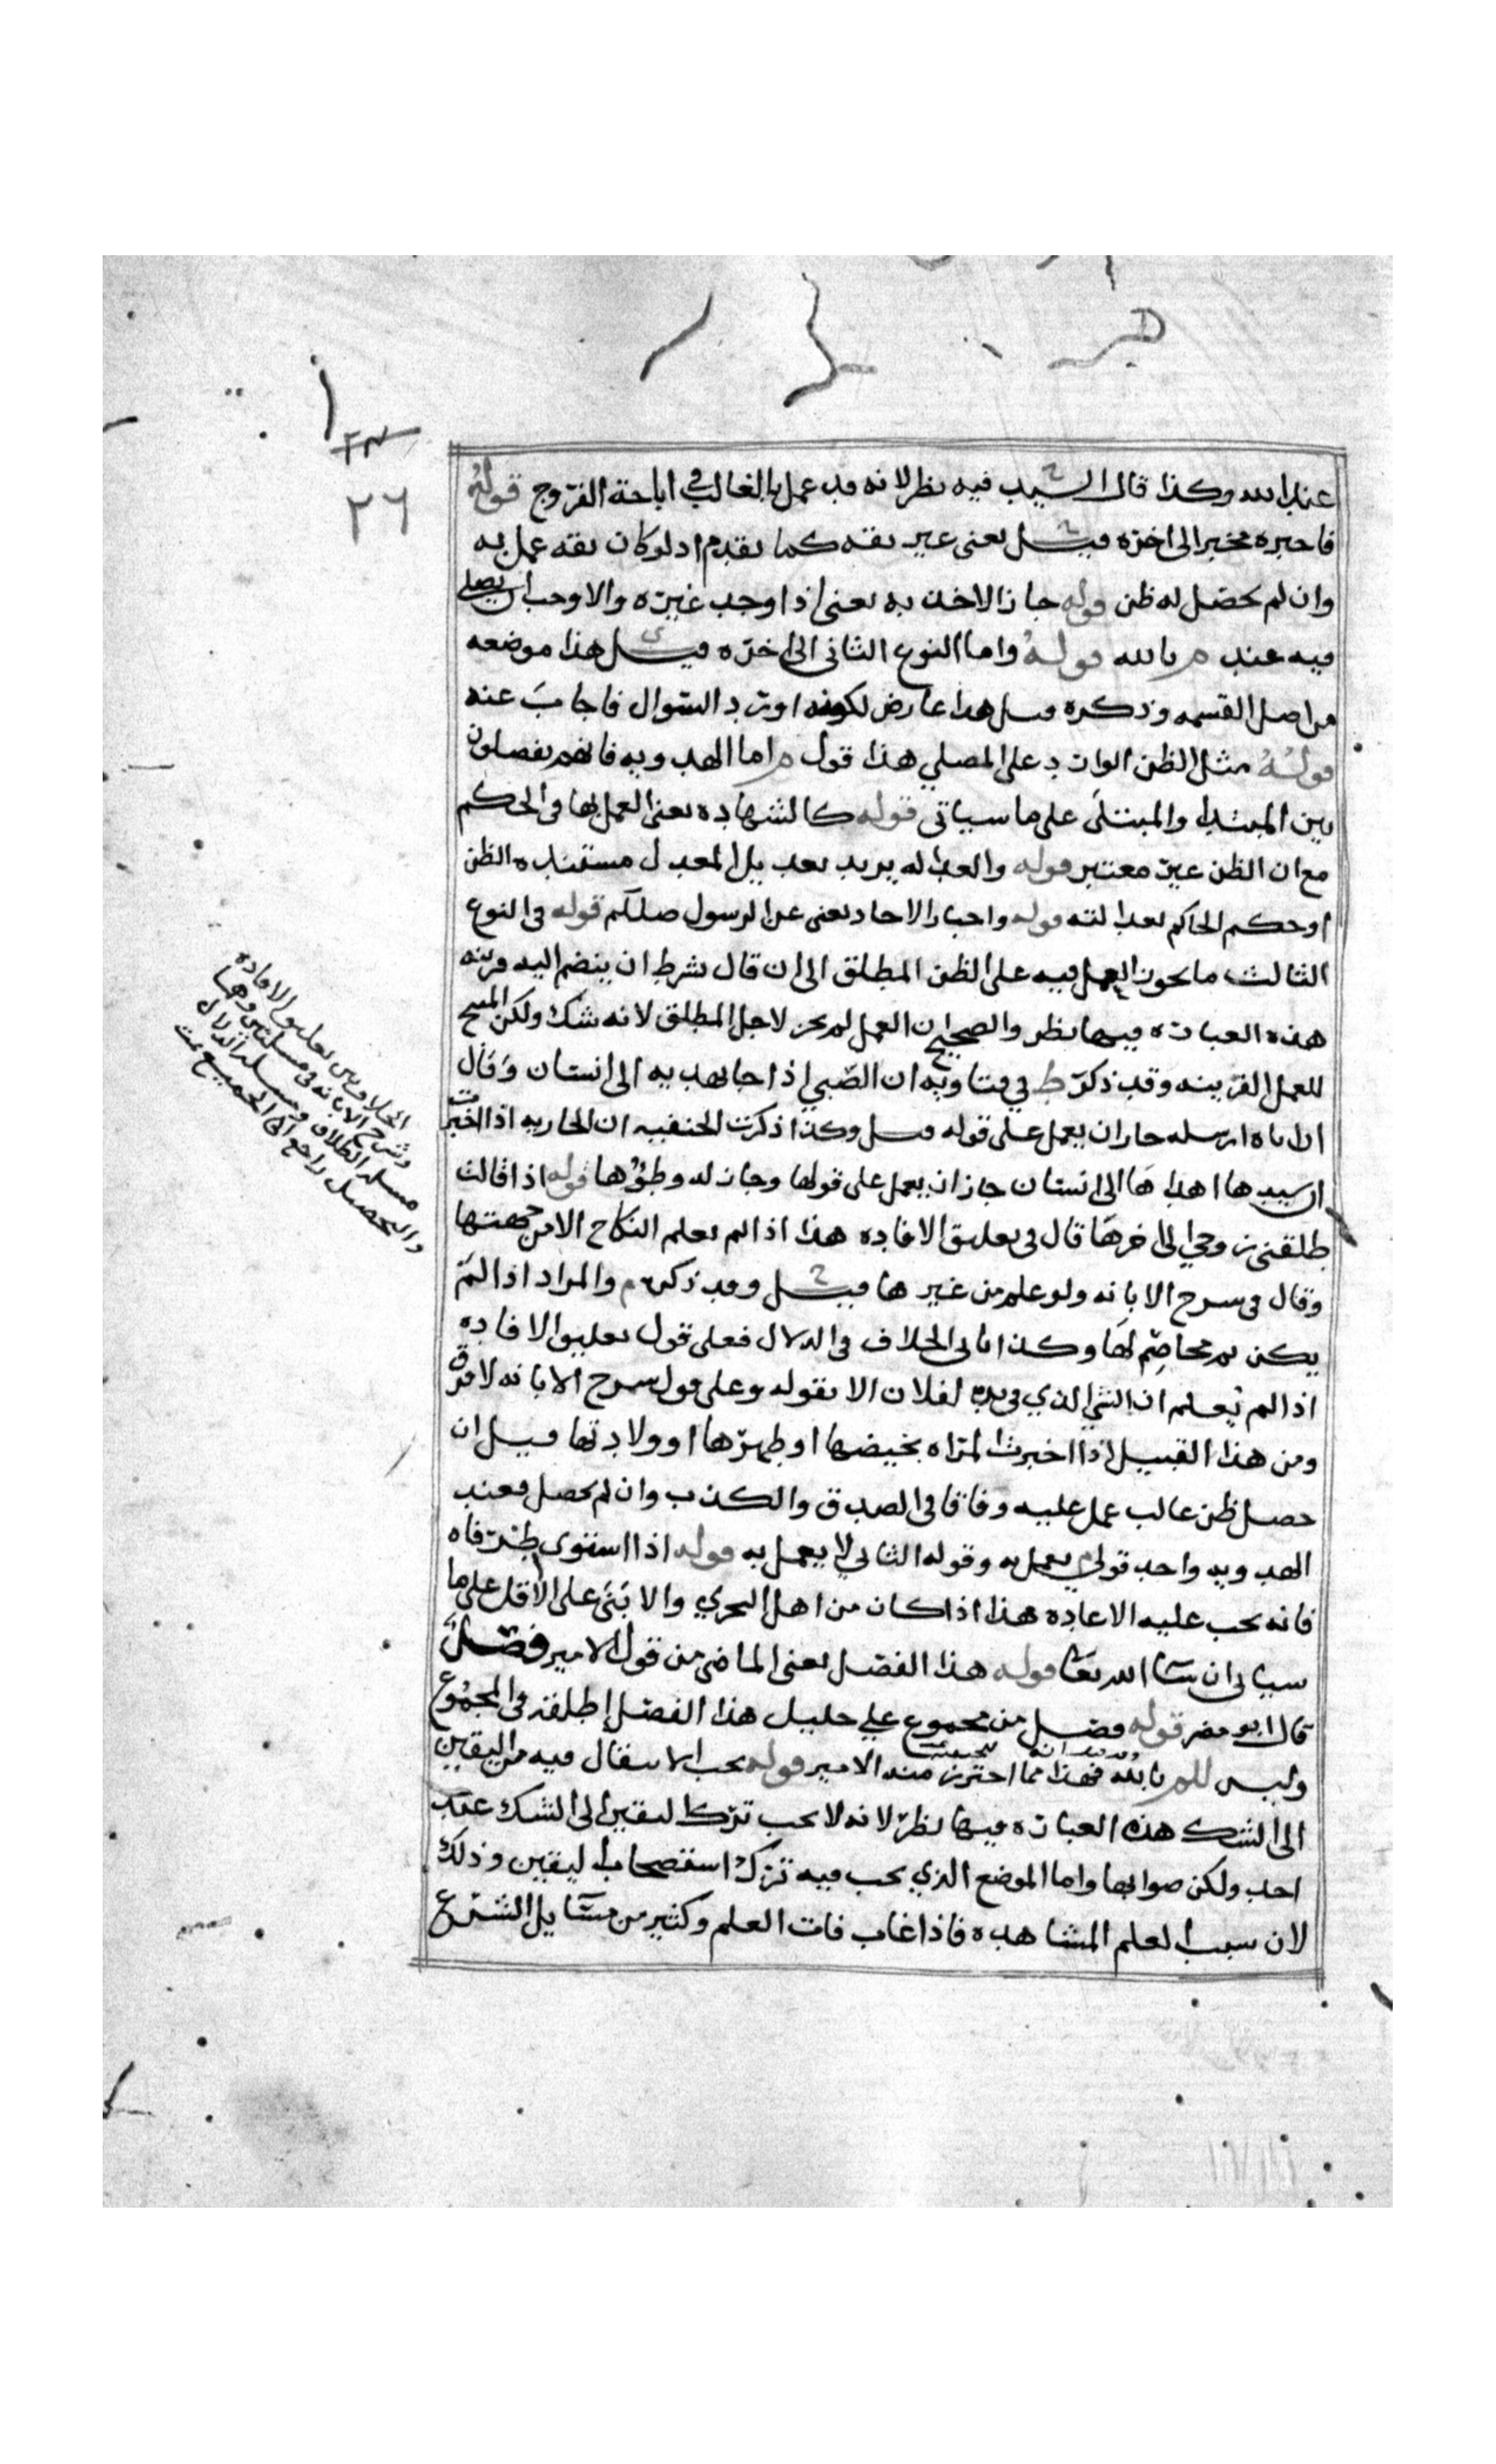 ٢٦
عند الله وكذا قال السيد فيه نظر لانه قد عمل بالغالب في اباحة الفروج قوله
فاخبره مخبر الى اخره قيل يعني غير ثقه كما تقدم اذ لو كان ثقه عمل به
وان لم يحصل له ظن قوله جاز الاخذ به يعني اذا وجد غيره والا وجب ان يصلي
فيه عند م بالله قوله واما النوع الثاني الى اخره قيل هذا موضعه
من اصل القسمه وذكره قبل هذا عارض لكونه اورد السوال فاجاب عنه
قوله مثل الظن الوارد على المصلي هذا قول م اما الهدويه فانهم يفصلون
بين المبتدا والمبتلى على ما سياتي قوله كالشهاده يعني العمل بها في الحكم
مع ان الظن غير معتبر قوله والعداله يريد تعديل المعدل مستنده الظن
او حكم الحاكم بعدالته قوله واخبار الاحاد يعني عن الرسول صللم قوله في النوع
الثالث ما يجوز العمل فيه على الظن المطلق الى ان قال بشرط ان ينضم اليه قرينه
هذه العباره فيها نظر والصحيح ان العمل لم يجز لاجل المطلق لانه شك ولكن المبيح
للعمل القرينه وقد ذكر ط في فتاويه ان الصبي اذا جا بهديه الى انسان وقال
ان اباه ارسله جاز ان يعمل على قوله قيل وكذا ذكرت الحنفيه ان الجاريه اذا اخبرت
ان سيدها اهداها الى انسان جاز ان يعمل على قولها وجاز له وطؤها قوله اذا قالت
طلقني زوجي الى اخرها قال في تعليق الافاده هذا اذا لم يعلم النكاح الا من جهتها
وقال في شرح الابانه ولو علم من غيرها قيل وقد ذكره م والمراد اذا لم
يكن ثم مخاصم لها وكذا ياتي الخلاف في الدلال فعلى قول تعليق الافاده
اذا لم يعلم ان الشي الذي في يده لفلان الا بقوله وعلى قول شرح الابانه لا فرق
ومن هذا القبيل اذا اخبرت المراه بحيضها او طهرها او ولادتها قيل ان
حصل ظن غالب عمل عليه وفاقا في الصدق والكذب وان لم يحصل فعند
الهدويه واحد قولي م يعمل به وقوله الثاني لا يعمل به قوله اذا استوى طرفاه
فانه يجب عليه الاعاده هذا اذا كان من اهل التحري والا بنى على الاقل على ما
سياتي ان شا الله تعا قوله هذا الفصل يعني الماضي من قول الامير فصل
قال ابو مضر قوله فصل من مجموع علي خليل هذا الفصل اطلقه في المجموع
وليس للم بالله فهذا مما احترز منه الامير قوله يجب الانتقال فيه من اليقين
الى الشك هذه العباره فيها نظر لانه لا يجب ترك اليقين الى الشك عند
احد ولكن صوابها واما الموضع الذي يجب فيه ترك استصحاب اليقين وذلك
لان سبب العلم المشاهده فاذا غاب فات العلم وكثير من مسايل الشرع
الخلاف بين تعليق الافاده
وشرح الابانه في مسلتين وهما
مسله الطلاق ومسله الدلال
والتحصيل راجع الى الجميع تمت